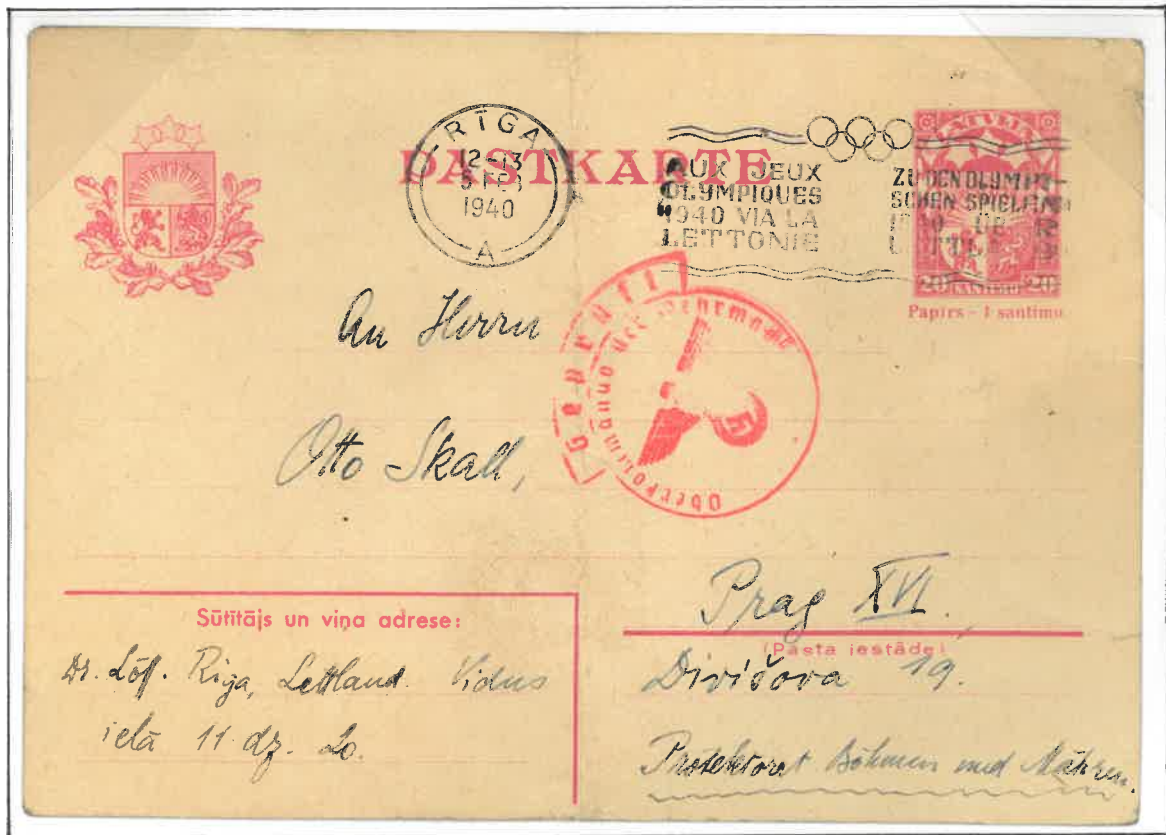 RIGA
12-13
5 FEB
1940
A
PASTKARTE
AUX JEUX
OLYMPIQUES
1940 VIA LA
LETTONIE
ZU DEN OLYMPI-
SCHEN SPIELEN
1940 ÜB
LATVIJA
20 SANTIMU 20
Papīrs - 1 santims
Geprüft
Oberkommando der Wehrmacht
An Herrn
Otto Skall,
Prag XVI.
(Pasta iestāde)
Divišova 19.
Protektorat Böhmen und Mähren.
Sūtītājs un viņa adrese:
Dr. Löff. Riga, Lettland. Vidus
ielā 11 dz. 20.